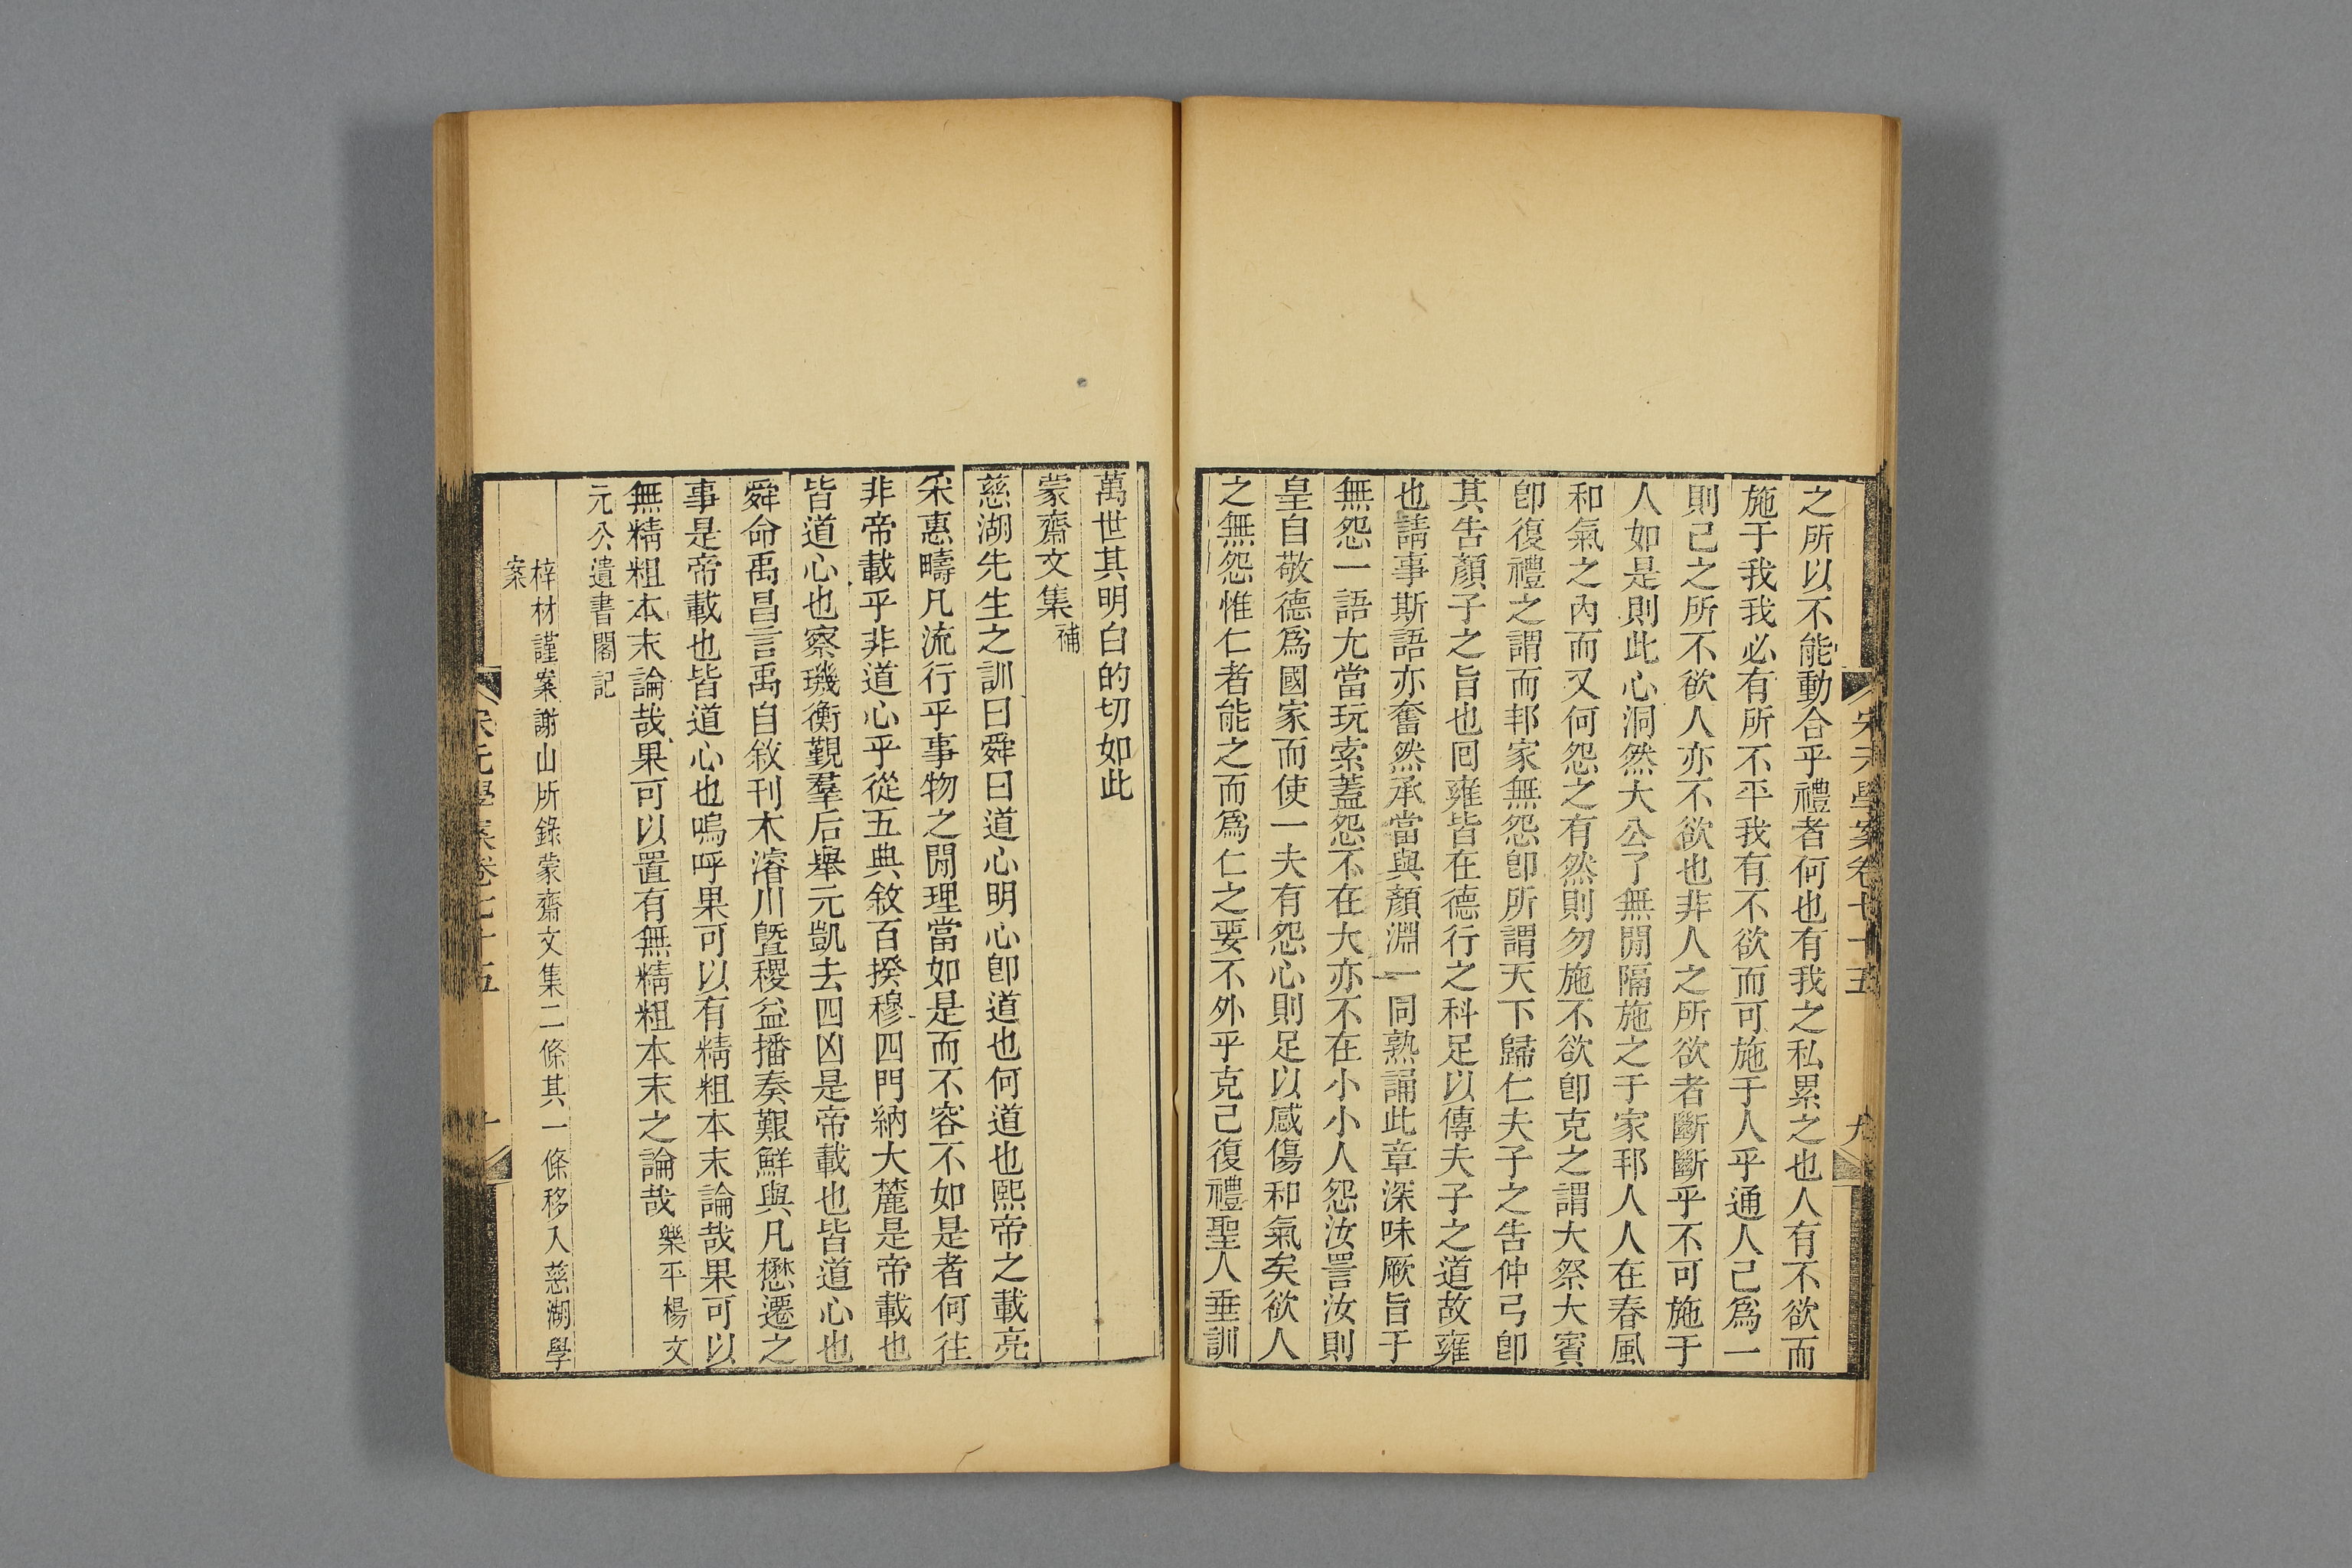 宋元學案卷七十五
九
之所以不能動合乎禮者何也有我之私累之也人有不欲而
施于我我必有所不平我有不欲而可施于人乎通人己爲一
則己之所不欲人亦不欲也非人之所欲者斷斷乎不可施于
人如是則此心洞然大公了無閒隔施之于家邦人人在春風
和氣之內而又何怨之有然則勿施不欲卽克之謂大祭大賓
卽復禮之謂而邦家無怨卽所謂天下歸仁夫子之告仲弓卽
其告顏子之旨也囘雍皆在德行之科足以傳夫子之道故雍
也請事斯語亦奮然承當與顏淵一同熟誦此章深味厥旨于
無怨一語尤當玩索蓋怨不在大亦不在小小人怨汝詈汝則
皇自敬德爲國家而使一夫有怨心則足以感傷和氣矣欲人
之無怨惟仁者能之而爲仁之要不外乎克己復禮聖人垂訓
萬世其明白的切如此
蒙齋文集補
慈湖先生之訓曰舜曰道心明心卽道也何道也熙帝之載亮
采惠疇凡流行乎事物之閒理當如是而不容不如是者何往
非帝載乎非道心乎從五典敘百揆穆四門納大麓是帝載也
皆道心也察璣衡覲羣后舉元凱去四凶是帝載也皆道心也
舜命禹昌言禹自敘刊木濬川曁稷益播奏艱鮮與凡懋遷之
事是帝載也皆道心也嗚呼果可以有精粗本末論哉果可以
無精粗本末論哉果可以置有無精粗本末之論哉樂平楊文
元公遺書閣記
梓材謹案謝山所錄蒙齋文集二條其一條移入慈湖學
案
宋元學案卷七十五
十